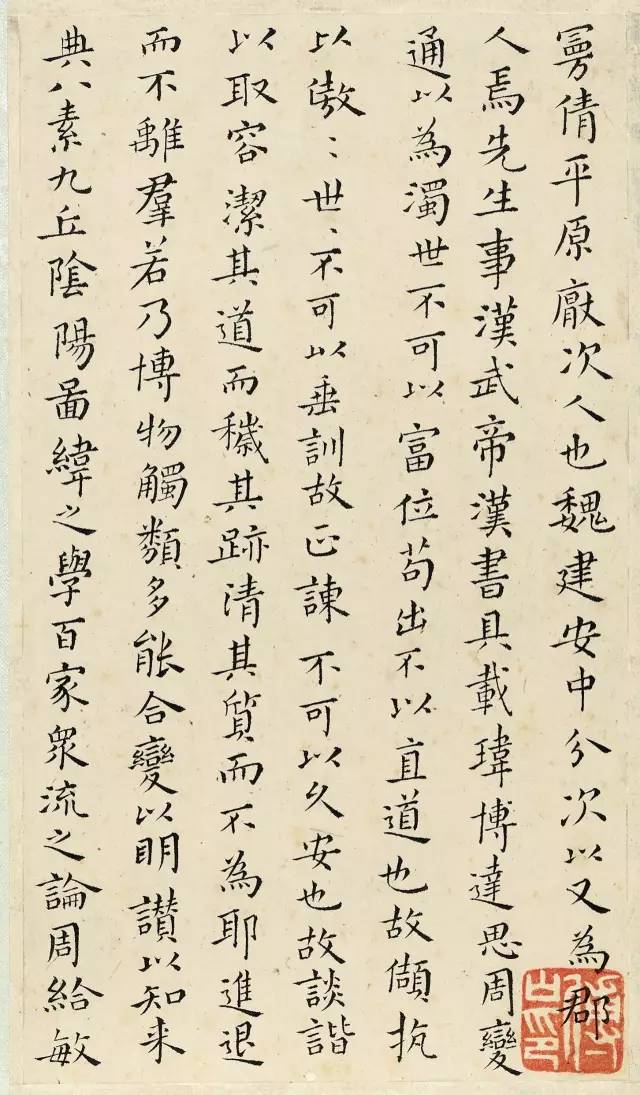 曼倩平原厰次人也魏建安中分次以又為郡
人焉先生事漢武帝漢書具載瑋博達思周變
通以為濁世不可以富位苟出不以直道也故抗
以傲〻世〻不可以垂訓故正諫不可以久安也故談諧
以取容潔其道而穢其跡清其質而不為耶進退
而不離羣若乃博物觸類多能合變以明讃以知来
典八素九丘陰陽啚緯之學百家衆流之論周給敏